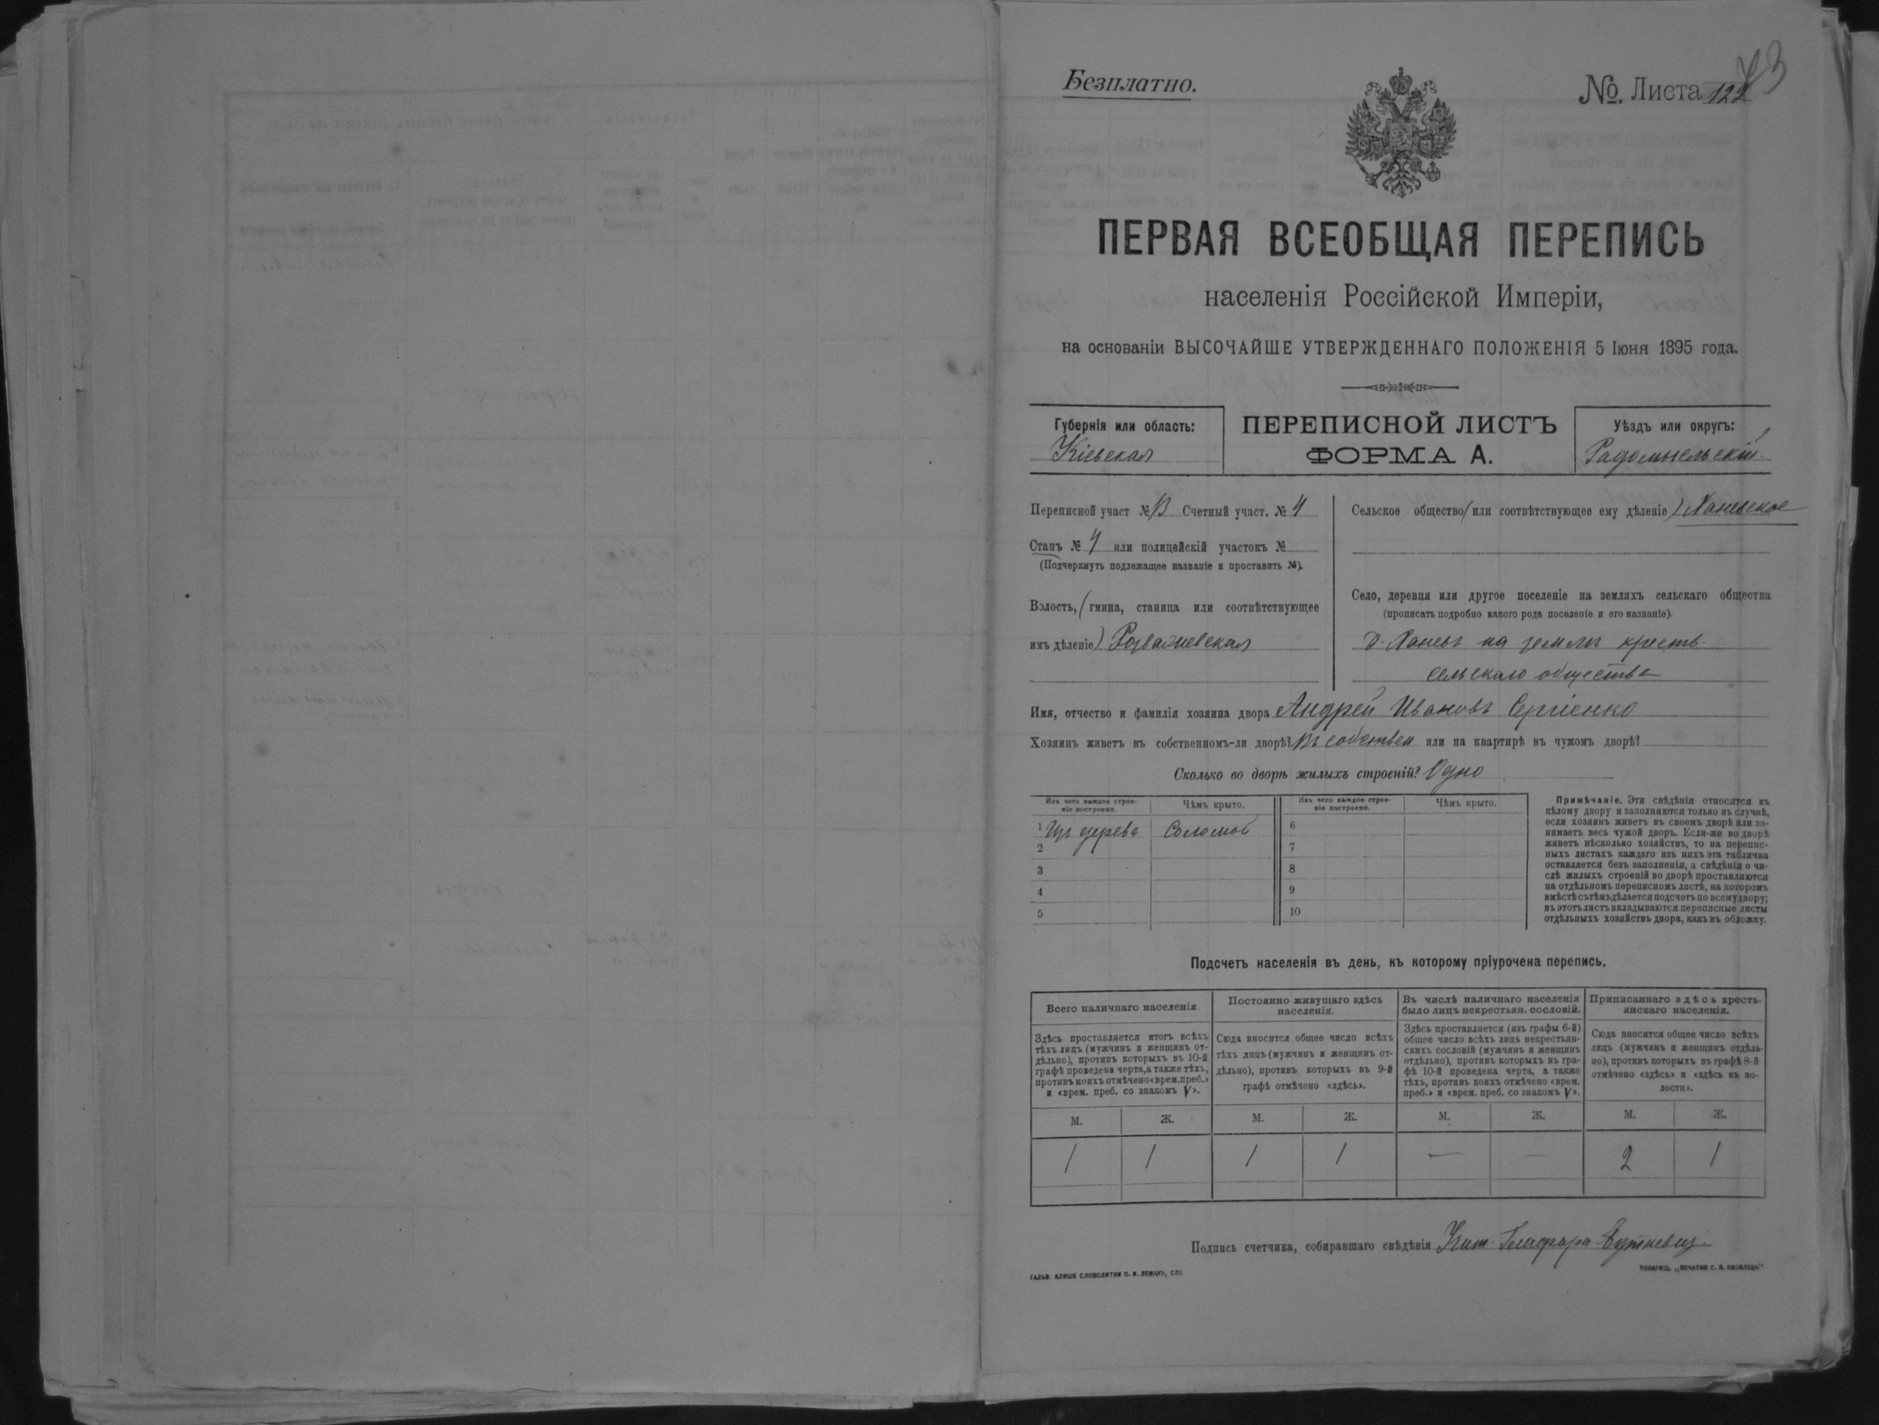 Безплатно.
№. Листа 122
73
ПЕРВАЯ ВСЕОБЩАЯ ПЕРЕПИСЬ
населенія Россійской Имперіи,
на основаніи ВЫСОЧАЙШЕ УТВЕРЖДЕННАГО ПОЛОЖЕНІЯ 5 Іюня 1895 года.
Губернія или область:
Кіевская
ПЕРЕПИСНОЙ ЛИСТЪ
ФОРМА А.
Уѣздъ или округъ:
Радомысльскій
Переписной участ № Счетный участ. № 4
Станъ № 4 или полицейскій участокъ №
(Подчеркнуть подлежащее названіе и проставить №).
Волость, (гмина, станица или соотвѣтствующее
имъ дѣленіе) Розважевская
Сельское общество (или соотвѣтствующее ему дѣленіе) Ханевское
Село, деревня или другое поселеніе на земляхъ сельскаго общества
(прописать подробно какого рода поселеніе и его названіе)
д. Ханевъ на землѣ крестъ.
сельскаго общества
Имя, отчество и фамилія хозяина двора Андрей Ивановъ Сергіенко
Хозяинъ живетъ въ собственномъ-ли дворѣ? Въ собствен или на квартирѣ въ чужомъ дворѣ?
Сколько во дворѣ жилыхъ строеній? Одно
Изъ чего каждое строе-
ніе построено.
Чѣмъ крыто.
Изъ чего каждое строе-
ніе построено.
Чѣмъ крыто.
1 Изъ дерева Соломой
2
3
4
5
6
7
8
9
10
Примѣчаніе. Эти свѣдѣнія относятся къ
цѣлому двору и заполняются только въ случаѣ,
если хозяинъ живетъ въ своемъ дворѣ или за-
нимаетъ весь чужой дворъ. Если-же во дворѣ
живетъ нѣсколько хозяйствъ, то на перепис-
ныхъ листахъ каждаго изъ нихъ эта табличка
оставляется безъ заполненія, а свѣдѣнія о чи-
слѣ жилыхъ строеній во дворѣ проставляются
на отдѣльномъ переписномъ листѣ, на которомъ
вмѣстѣ съ тѣмъ дѣлается подсчетъ по всему двору;
въ этотъ листъ вкладываются переписные листы
отдѣльныхъ хозяйствъ двора, какъ въ обложку.
Подсчетъ населенія въ день, къ которому пріурочена перепись.
Всего наличнаго населенія.
Здѣсь проставляется итогъ всѣхъ
тѣхъ лицъ (мужчинъ и женщинъ от-
дѣльно), противъ которыхъ въ 10-й
графѣ проведена черта, а также тѣхъ,
противъ коихъ отмѣчено «врем. преб.»
и «врем. преб. со знакомъ V».
Постоянно живущаго здѣсь
населенія.
Сюда вносится общее число всѣхъ
тѣхъ лицъ (мужчинъ и женщинъ от-
дѣльно), противъ которыхъ въ 9-й
графѣ отмѣчено «здѣсь».
Въ числѣ наличнаго населенія
было лицъ некрестьян. сословій.
Здѣсь проставляется (изъ графы 6-й)
общее число всѣхъ лицъ некрестьян-
скихъ сословій (мужчинъ и женщинъ
отдѣльно), противъ которыхъ въ гра-
фѣ 10-й проведена черта, а также
тѣхъ, противъ коихъ отмѣчено «врем.
преб.» и «врем. преб. со знакомъ V».
Приписаннаго здѣсь кресть-
янскаго населенія.
Сюда вносится общее число всѣхъ
лицъ (мужчинъ и женщинъ отдѣль-
но), противъ которыхъ въ графѣ 8-й
отмѣчено «здѣсь» и «здѣсь въ во-
лости».
М. Ж. М. Ж. М. Ж. М. Ж.
1 1 1 1 — — 2 1
Подпись счетчика, собиравшаго свѣдѣнія
ГАЛЬВ. КЛИШЕ СЛОВОЛИТНИ О. И. ЛЕМАНЪ, СПБ
ТОВАРИЩ. „ПЕЧАТНЯ С. П. ЯКОВЛЕВА"